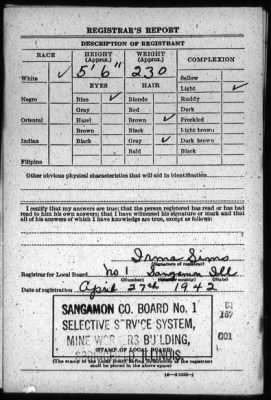 REGISTRAR'S REPORT
DESCRIPTION OF REGISTRANT
RACE HEIGHT (Approx.) WEIGHT (Approx.) COMPLEXION
White ✓ 5' 6" 230 Sallow
EYES HAIR Light ✓
Negro Blue ✓ Blonde Ruddy
Gray Red Dark
Oriental Hazel Brown ✓ Freckled
Brown Black Light brown
Indian Black Gray ✓ Dark brown
Bald Black
Filipino
Other obvious physical characteristics that will aid in identification
I certify that my answers are true; that the person registered has read or has had
read to him his own answers; that I have witnessed his signature or mark and that
all of his answers of which I have knowledge are true, except as follows:
Irma Sims
(Signature of registrar)
Registrar for Local Board No 1 Sangamon Ill
(Number) (City or county) (State)
Date of registration April 27th 1942
SANGAMON CO. BOARD No. 1
SELECTIVE SERVICE SYSTEM,
MINE WORKERS BUILDING,
ILLINOIS
(STAMP OF LOCAL BOARD)
(The stamp of the Local Board having jurisdiction of the registrant
shall be placed in the above space.)